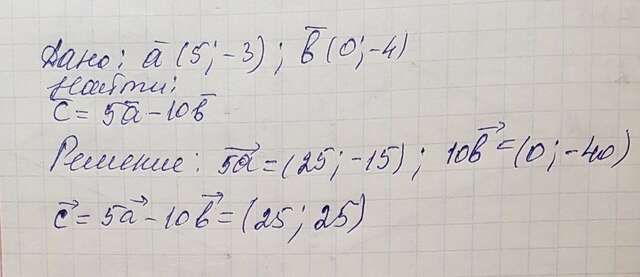 Дано: a̅ (5; -3); b̅ (0; -4)
Найти:
c̅ = 5a̅ - 10b̅
Решение: 5a⃗ = (25; -15); 10b⃗ = (0; -40)
c⃗ = 5a⃗ - 10b⃗ = (25; 25)